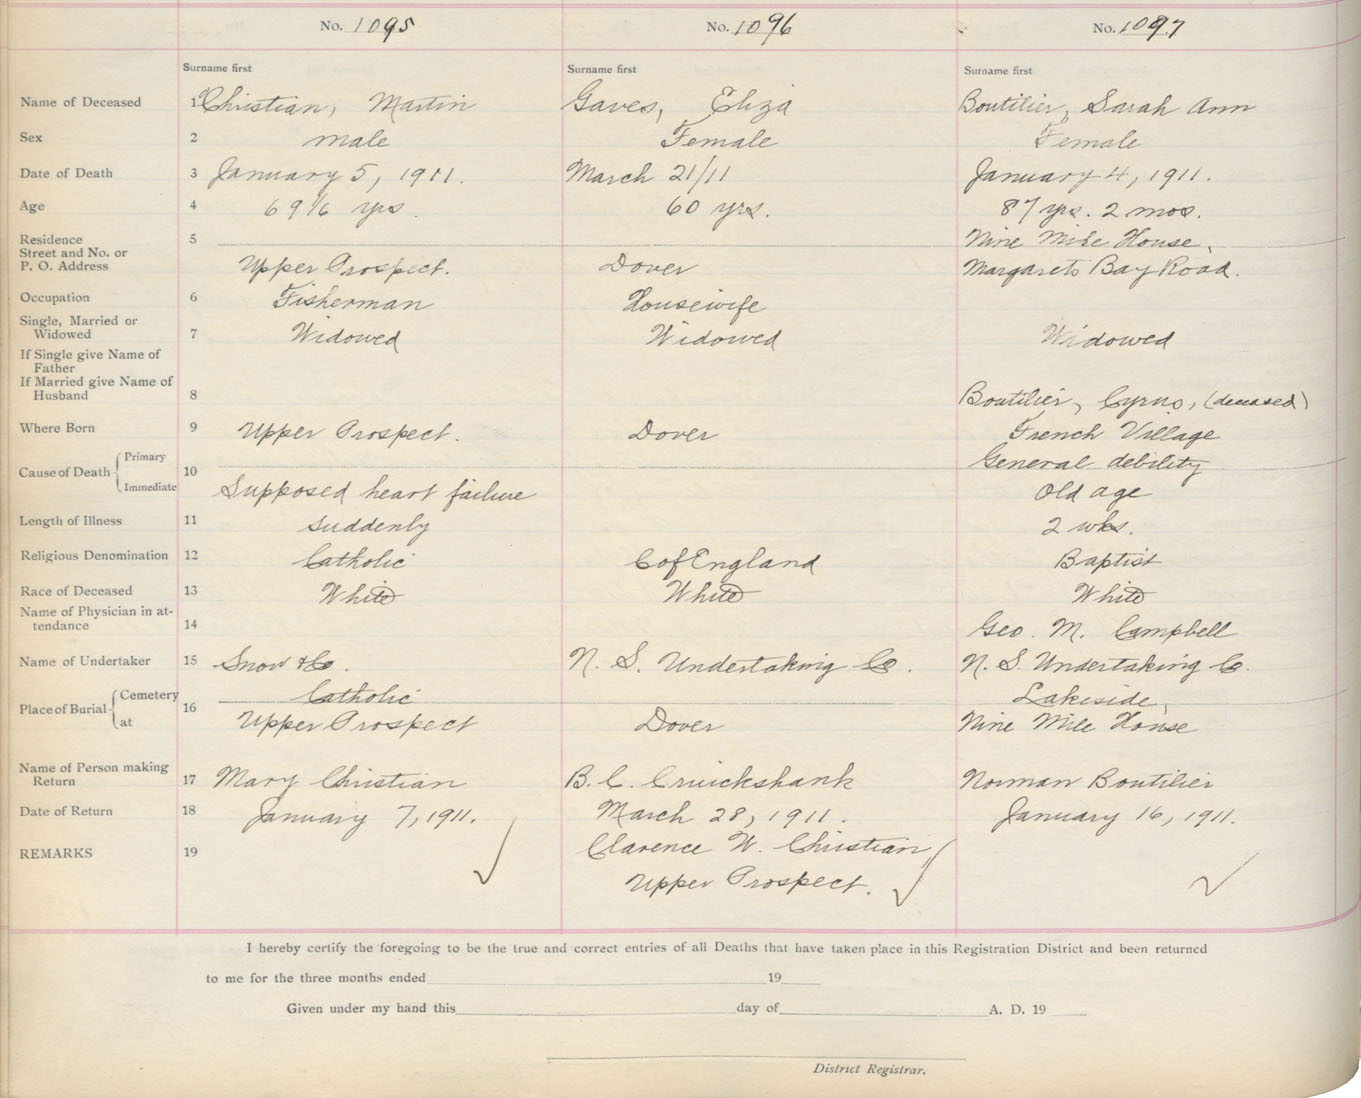 No. 1095 No. 1096 No. 1097
Surname first Surname first Surname first
Name of Deceased 1 Christian, Martin Gaves, Eliza Boutilier, Sarah Ann
Sex 2 male Female Female
Date of Death 3 January 5, 1911. March 21/11 January 4, 1911.
Age 4 yrs. 60 yrs. 87 yrs. 2 mos.
Residence 5 Nine Mile House,
Street and No. or
P. O. Address Upper Prospect. Dover Margarets Bay Road.
Occupation 6 Fisherman Housewife
Single, Married or
Widowed 7 Widowed Widowed Widowed
If Single give Name of
Father
If Married give Name of
Husband 8 Boutilier, Cyrus, (deceased)
Where Born 9 Upper Prospect. Dover French Village
Primary General debility
Cause of Death 10
Immediate Supposed heart failure Old age
Length of Illness 11 suddenly 2 wks.
Religious Denomination 12 Catholic C of England Baptist
Race of Deceased 13 White White White
Name of Physician in at-
tendance 14 Geo. M. Campbell
Name of Undertaker 15 Snow & Co. N. S. Undertaking Co. N. S. Undertaking Co.
Cemetery Catholic Lakeside,
Place of Burial 16
at Upper Prospect Dover Nine Mile House
Name of Person making
Return 17 Mary Christian B. C. Cruickshank Norman Boutilier
Date of Return 18 January 7, 1911. March 28, 1911. January 16, 1911.
REMARKS 19 Clarence W. Christian
Upper Prospect.
I hereby certify the foregoing to be the true and correct entries of all Deaths that have taken place in this Registration District and been returned
to me for the three months ended 19
Given under my hand this day of A. D. 19
District Registrar.